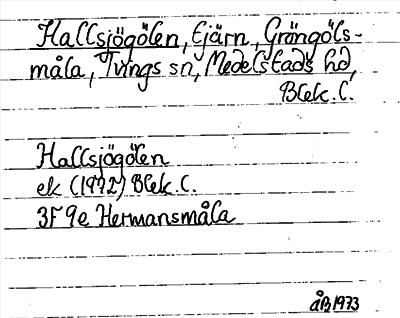 Hallsjögölen, tjärn, Gröngöls-
måla, Tvings sn, Medelstads hd,
Blek. l.
Hallsjögölen
ek (1972) Blek. l.
3F 9e Hermansmåla
åB 1973